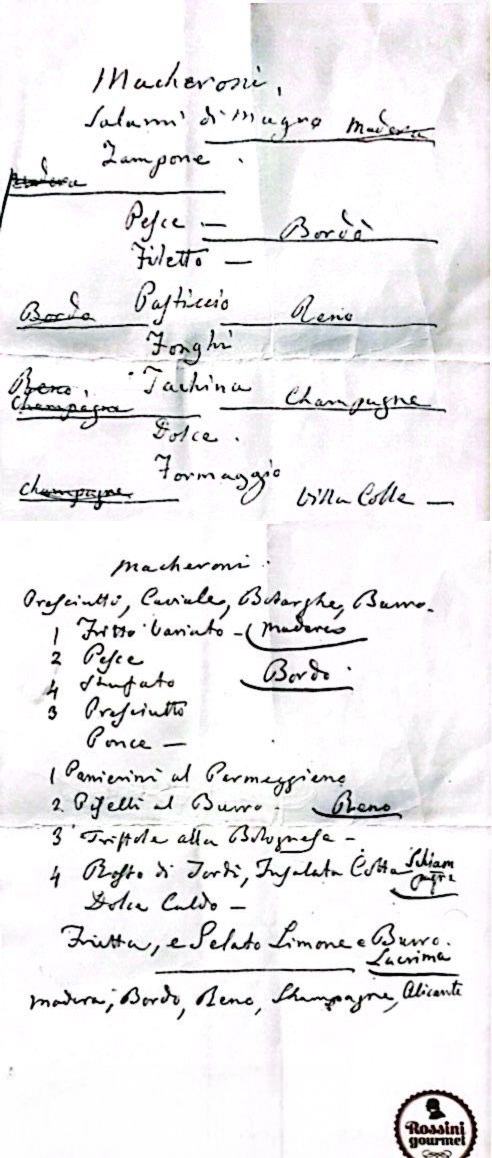 Macheroni,
Salami di magro Madera
Zampone.
Madera
Pesce — Bordò
Filetto —
Bordò Pasticcio Reno
Fonghi
Reno Tachina
Champagna Champagne
Dolce.
Formaggio
Champagne Villa Colle —
Macheroni.
Prosciutto, Caviale, Botarghe, Burro.
1 Fritto Variato — Madera
2 Pesce
4 Stuffato Bordò.
3 Prosciutto
Ponce —
1 Panierini al Permeggiano
2. Piselli al Burro. Reno
3 alla Bolognese —
4 Rosto di Tordi, Insalata Cotta
Dolce Caldo —
Frutta, e Gelato Limone e Burro.
Lacrima
Madera, Bordò, Reno, Champagne, Alicante
Rossini
gourmet